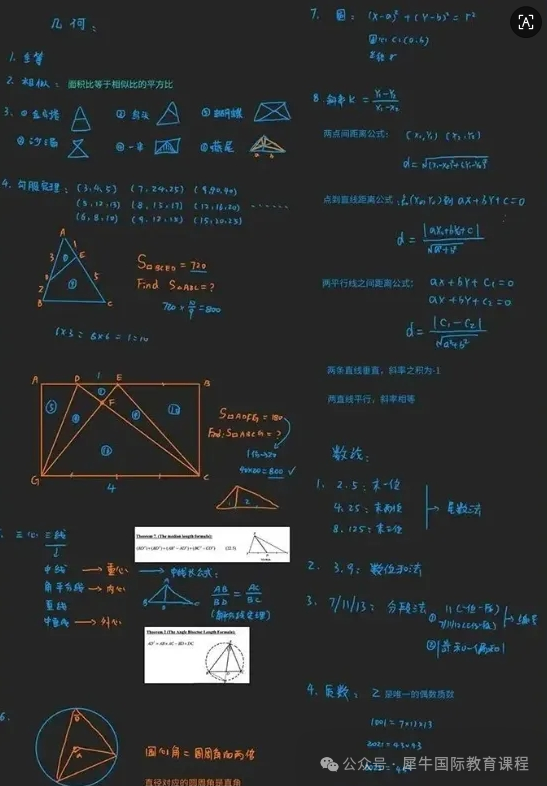 几何：
1. 全等
2. 相似： 面积比等于相似比的平方比
3. ① ② 鸟头 ③ 蝴蝶
④ 沙漏 ⑤ 一半 ⑥ 燕尾
a b
4. 勾股定理：(3,4,5) (7,24,25) (9,40,41)
(5,12,13) (8,15,17) (12,16,20) ......
(6,8,10) (9,12,15) (15,20,25)
A
3 1
E
D
2 5
B C
S□BCED = 720
Find S△ABC = ?
720 × 10/9 = 800
A D 1 E B
F
G 4 C
Find: S□ABCG = ?
1 2
三心 三线
中线 → 重心 → 中线长公式：
角平分线 → 内心
垂线
中垂线 → 外心
Theorem 7. (The median length formula):
A
B D C
AB/BD = AC/DC
(角平分线定理)
Theorem 2 (The Angle Bisector Length Formula):
AD² = AB × AC − BD × DC
6.
圆心角 = 圆周角的两倍
直径对应的圆周角是直角
7. 圆： (x-a)² + (y-b)² = r²
圆心 C:(a,b)
半径 r
8. 斜率 K = Y₁-Y₂/X₁-X₂
两点间距离公式： (X₁,Y₁) (X₂,Y₂)
d = √(X₁-X₂)²+(Y₁-Y₂)²
点到直线距离公式：点(X₀,Y₀)到 ax+by+c=0
d = |aX₀+bY₀+c|/√a²+b²
两平行线之间距离公式： ax+by+c₁=0
ax+by+c₂=0
d = |c₁-c₂|/√a²+b²
两条直线垂直，斜率之积为-1
两直线平行，斜率相等
数线：
1. 2.5：末一位
4.25：末两位 → 尾数法
8.125：末三位
2. 3.9：数位和法
3. 7/11/13：分段法
4. 质数： 2 是唯一的偶数质数
1001 = 7×11×13
公众号 · 犀牛国际教育课程